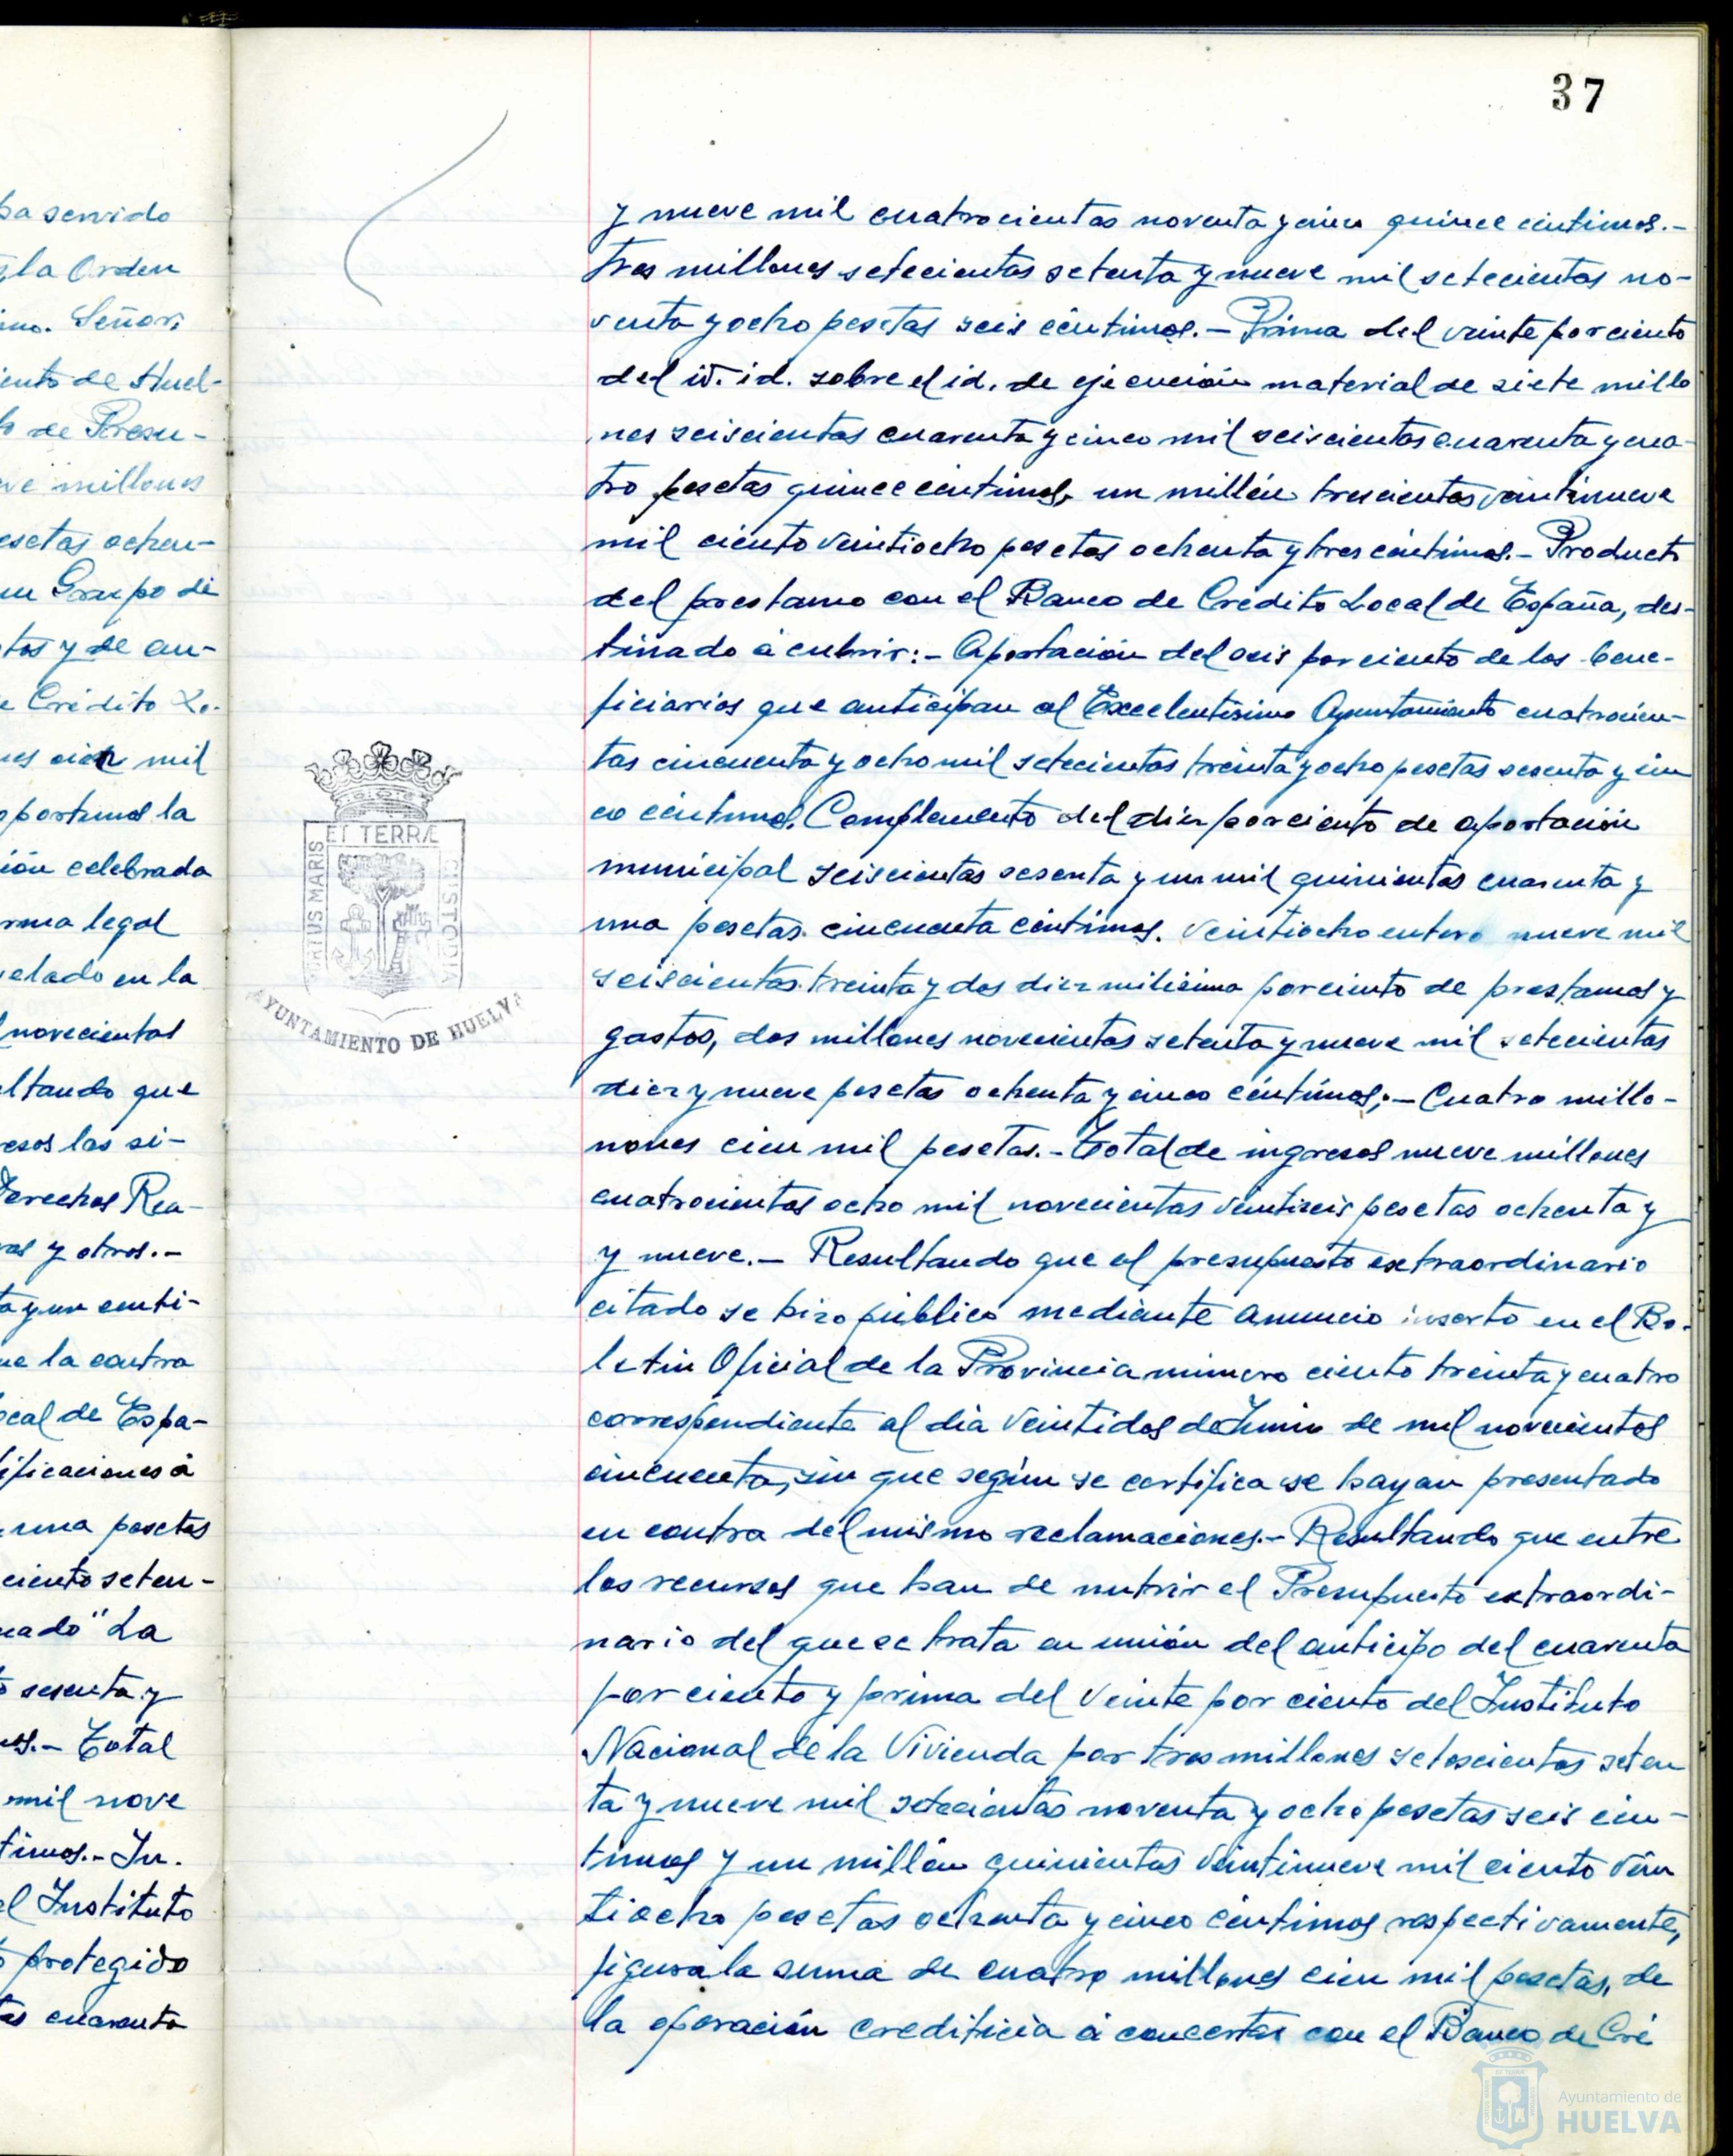 37
ha servido
la Orden
imo. Señor:
iento de Huel-
to de Presu-
ve millones
esetas ochen-
un Grupo de
tos y de an-
e Crédito Lo-
es cien mil
oportunos la
ión celebrada
rma legal
elado en la
novecientos
ltando que
resos las si-
Derechos Rea-
ras y otros.-
ta y un centi-
ue la contra
ocal de Espa-
ificaciones á
una pesetas
ciento seten-
La
sesenta y
os.- Total
mil nove
timos.- In-
el Instituto
protegido
tas cuarenta
y nueve mil cuatrocientas noventa y cinco quince centimos.-
tres millones setecientas setenta y nueve mil setecientas no-
venta y ocho pesetas seis céntimos.- Prima del veinte por ciento
del id. id. sobre el id. de ejecución material de siete millo
nes seiscientas cuarenta y cinco mil seiscientas cuarenta y cua-
tro pesetas quince centimos, un millón trescientas veintinueve
mil ciento veintiocho pesetas ochenta y tres céntimos.- Producto
del prestamo con el Banco de Crédito Local de España, des-
tinado á cubrir:- Aportación del seis por ciento de los bene-
ficiarios que anticipan al Excelentísimo Ayuntamiento cuatrocien-
tas cincuenta y ocho mil setecientas treinta y ocho pesetas sesenta y cin
co céntimos. Complemento del diez por ciento de aportación
municipal seiscientas sesenta y un mil quinientas cuarenta y
una pesetas cincuenta céntimos. Veintiocho entero nueve mil
seiscientas treinta y dos diezmilésima por ciento de prestamos y
gastos, dos millones novecientas setenta y nueve mil setecientas
diez y nueve pesetas ochenta y cinco céntimos;- Cuatro millo-
nones cien mil pesetas.- Total de ingresos nueve millones
cuatrocientas ocho mil novecientas veintiseis pesetas ochenta y
y nueve.- Resultando que el presupuesto extraordinario
citado se hizo público mediante anuncio inserto en el Bo-
letin Oficial de la Provincia número ciento treinta y cuatro
correspondiente al dia veintidos de Junio de mil novecientos
cincuenta, sin que según se certifica se hayan presentado
en contra del mismo reclamaciones.- Resultando que entre
los recursos que han de nutrir el Presupuesto extraordi-
nario del que se trata en unión del anticipo del cuarenta
por ciento y prima del veinte por ciento del Instituto
Nacional de la Vivienda por tres millones setescientas seten
ta y nueve mil setecientas noventa y ocho pesetas seis cén-
timos y un millón quinientas veintinueve mil ciento vein
tiocho pesetas ochenta y cinco céntimos respectivamente,
figura la suma de cuatro millones cien mil pesetas, de
la operación crediticia á concertar con el Banco de Cré
PORTUS MARIS ET TERRÆ CUSTODIA
AYUNTAMIENTO DE HUELVA
Ayuntamiento de
HUELVA